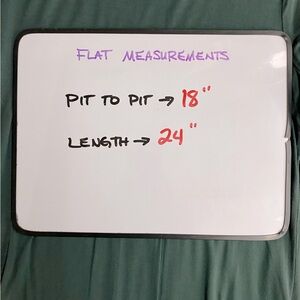 FLAT MEASUREMENTS
PIT TO PIT → 18"
LENGTH → 24"